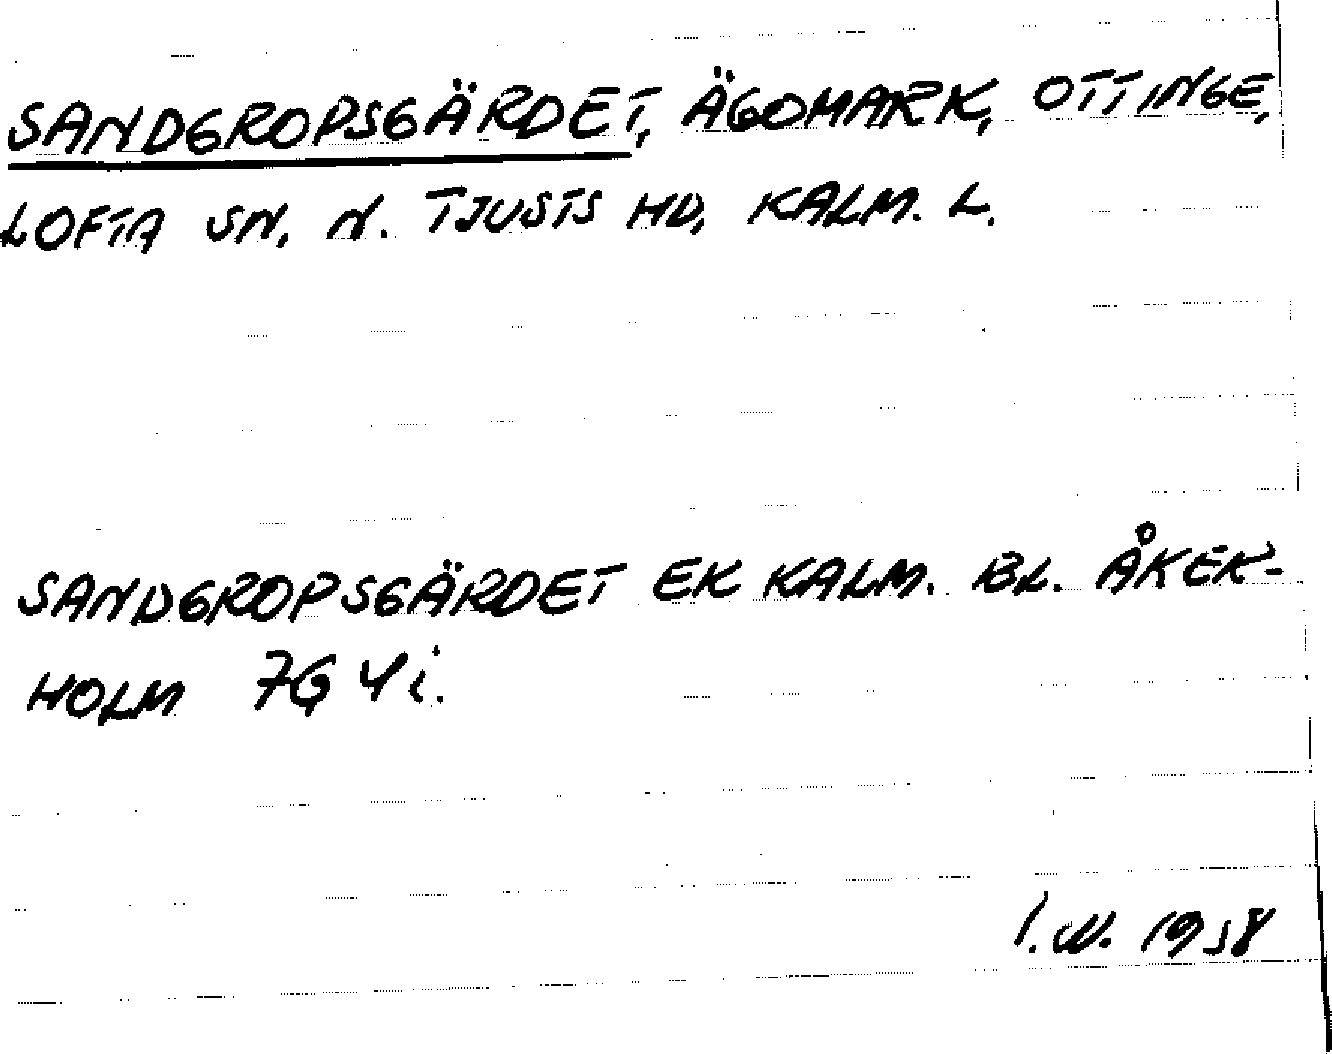 SANDGROPSGÄRDET, ÄGOMARK, OTTINGE,
LOFTA SN, N. TJUSTS HD, KALM. L.
SANDGROPSGÄRDET EK KALM. BL. ÅKER-
HOLM 7G 4i.
I.N. 1958